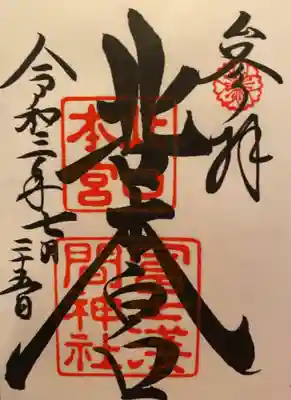 参拝
北口本宮
北口
本宮
冨士淺
間神社
令和二年七月二十五日